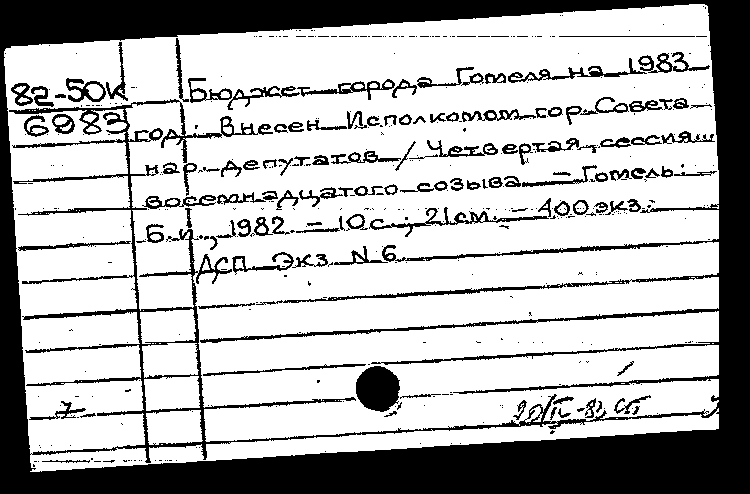 82-50К
6983
Бюджет города Гомеля на 1983
год: Внесен Исполкомом гор. Совета
нар. депутатов / Четвертая сессия...
восемнадцатого созыва. – Гомель:
Б.и., 1982. – 10с.; 21см. – 400экз.
ДСП Экз. N 6
7
20/IV-83